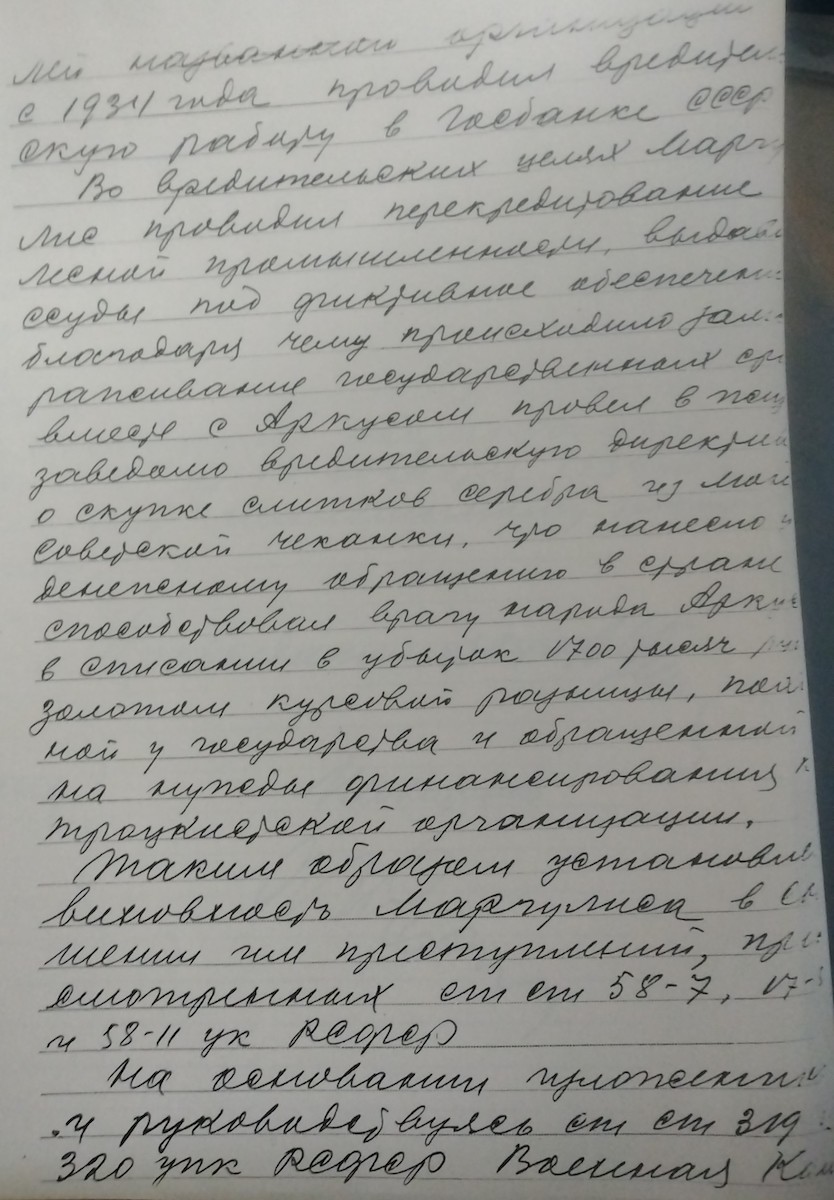 лей названной организации
с 1934 года проводил вредитель
скую работу в Госбанке СССР
Во вредительских целях Маргу
лис проводил перекредитование
лесной промышленности, выдавал
ссуды под фиктивное обеспечение
благодаря чему происходило зам
раживание государственных ср
вместе с Аркусом провел в жиз
заведомо вредительскую директив
о скупке слитков серебра из мон
советской чеканки, что нанесло у
денежному обращению в стране
способствовал врагу народа Арку
в списании в убыток 1700 тысяч ру
золотом курсовой разницы, пох
ной у государства и обращенной
на нужды финансирования к
троцкистской организации.
Таким образом установле
виновность Маргулиса в со
шении им преступлений, пре
смотренных ст ст 58-7, 17-5
и 58-11 ук РСФСР
На основании изложенн
и руководствуясь ст ст 319
320 упк РСФСР Военная Кол